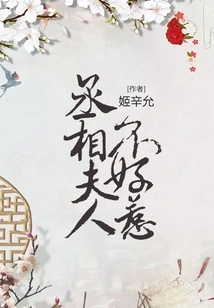 [作者]
姬辛允
丞相夫人
不好惹